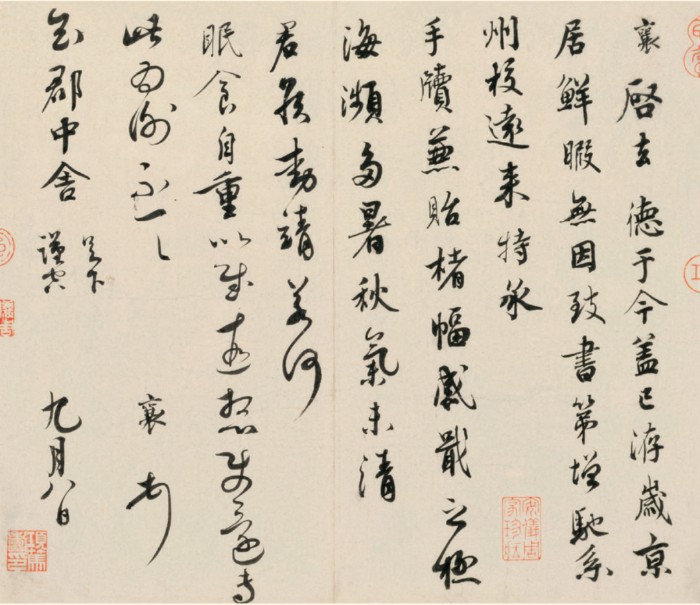 襄啓去德于今蓋已洊歲京
居鮮暇無因致書第增馳系
州校遠來特承
手牘兼貽楮幅感戢之極
海瀕多暑秋氣未清
君侯動靜若何
眠食自重以慰遠想使還專
此為謝不一一 襄頓首
知郡中舍足下
謹空 九月八日